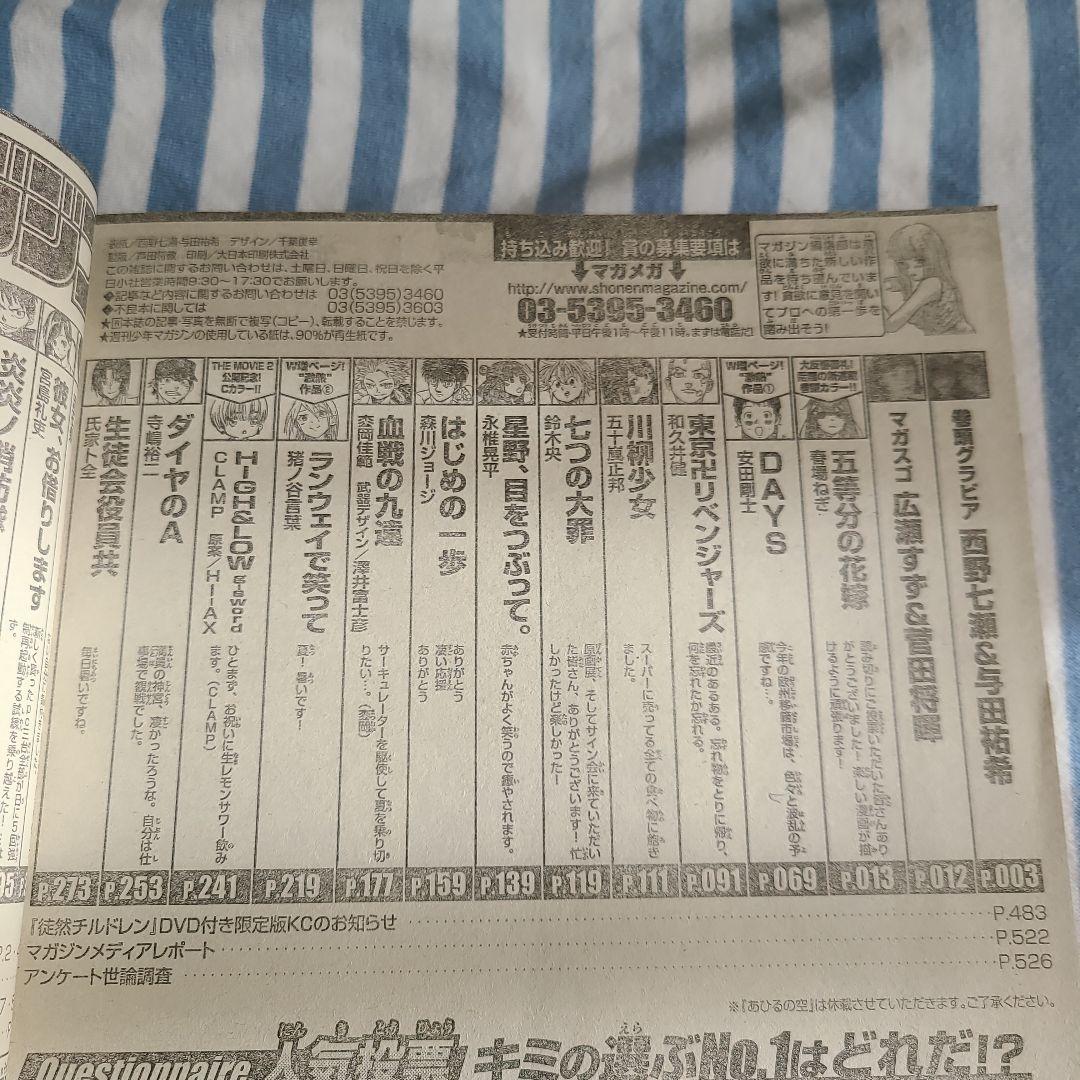 表紙/西野七瀬・与田祐希 デザイン/千葉優幸
製版/芦田 印刷/大日本印刷株式会社
この雑誌に関するお問い合わせは、土曜日、日曜日、祝日を除く平
日小社営業時間9:30〜17:30でお願いします。
◆記事など内容に関するお問い合わせは 03(5395)3460
◆不良本に関しては 03(5395)3603
★因本誌の記事・写真を無断で複写(コピー)、転載することを禁じます。
★週刊少年マガジンの使用している紙は、90%が再生紙です。
持ち込み歓迎! 賞の募集要項は
↓マガメガ↓
http://www.shonenmagazine.com/
03-5395-3460
★受付時間・平日午後1時〜午後11時。まずは電話だ!
マガジン編集部は意
欲に満ちた新しい作
品を待ち望んでいま
す!貪欲に意見を聞い
てプロへの第一歩を
踏み出そう!
巻頭グラビア 西野七瀬&与田祐希
P.003
マガスゴ 広瀬すず&菅田将暉
P.012
五等分の花嫁
春場ねぎ
読み切りにご投票いただいた皆さんあり
がとうございました!楽しい漫画が描
けるように頑張ります!
P.013
W増ページ!
"激熱"
作品①
DAYS
安田剛士
今年の欧州移籍市場は、色々と波乱の予
感ですね…。
P.069
東京卍リベンジャーズ
和久井健
最近のあるある。忘れ物をとりに帰り、
何を忘れたか忘れる。
P.091
川柳少女
五十嵐正邦
スーパーに売ってる全ての食べ物に飽き
ました。
P.111
七つの大罪
鈴木央
原画展、そしてサイン会に来ていただい
た皆さん、ありがとうございます!忙
しかったけど楽しかったー!
P.119
星野、目をつぶって。
永椎晃平
赤ちゃんがよく笑うので癒やされます。
P.139
はじめの一歩
森川ジョージ
ありがとう
凄い応援
ありがとう
P.159
血戦の九遠
森岡佳範 武器デザイン/澤井富士彦
サーキュレーターを駆使して夏を乗り切
りたい…。(森岡)
P.177
W増ページ!
"激熱"
作品②
ランウェイで笑って
猪ノ谷言葉
夏!暑いです!
P.219
THE MOVIE 2
公開記念!
Cカラー!!
HIGH&LOW g-sword
CLAMP 原案/HI-AX
ひとまず、お祝いに生レモンサワー飲み
ます。(CLAMP)
P.241
ダイヤのA
寺嶋裕二
満員の神宮、凄かったろうな。自分は仕
事場で観戦でした。
P.253
生徒会役員共
氏家ト全
毎日暑いですね。
P.273
彼女、お借りします
宮島礼吏
『徒然チルドレン』DVD付き限定版KCのお知らせ P.483
マガジンメディアレポート P.522
アンケート世論調査 P.526
※『あひるの空』は休載させていただきます。ご了承ください。
Questionnaire 人気投票 キミの選ぶNo.1はどれだ!?